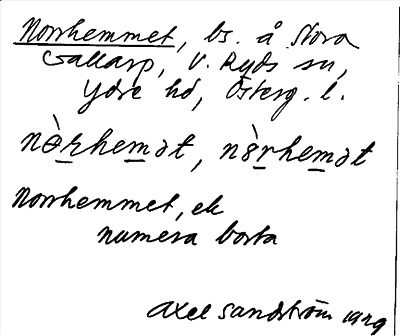 Norrhemmet, bs. å Stora
Gallarp, V. Ryds sn,
Ydre hd, Österg. l.
nə̀r̲hem̲ət, nɞ̀r̲hem̲ət
Norrhemmet, ek
numera borta
Axel Sandström 1929